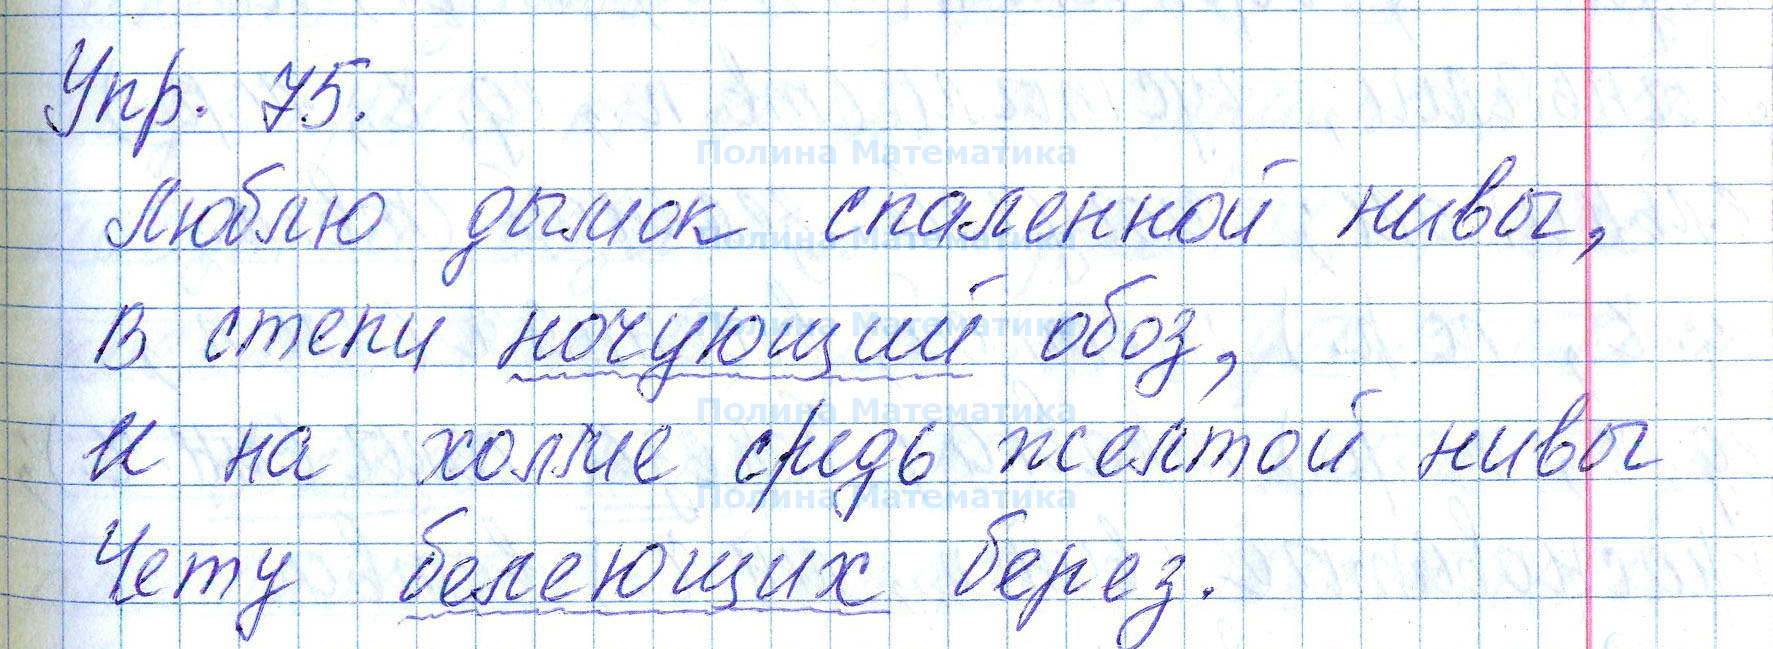 Упр. 75.
Полина Математика
Люблю дымок спаленной нивы,
Полина Математика
В степи ночующий обоз,
Полина Математика
Полина Математика
И на холме средь желтой нивы
Полина Математика
Чету белеющих берез.